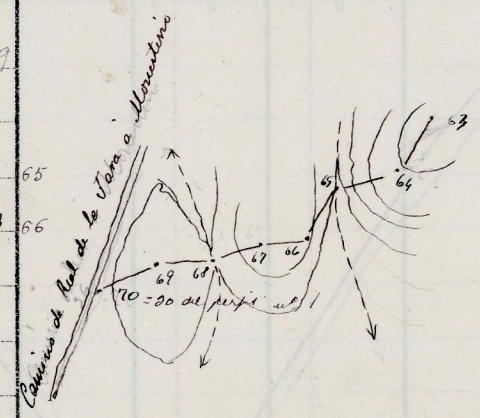 Camino de Real de la Jara á Monesterio
63
65
65
64
66
66
67
68
69
70 = 20 de perfil nº 1